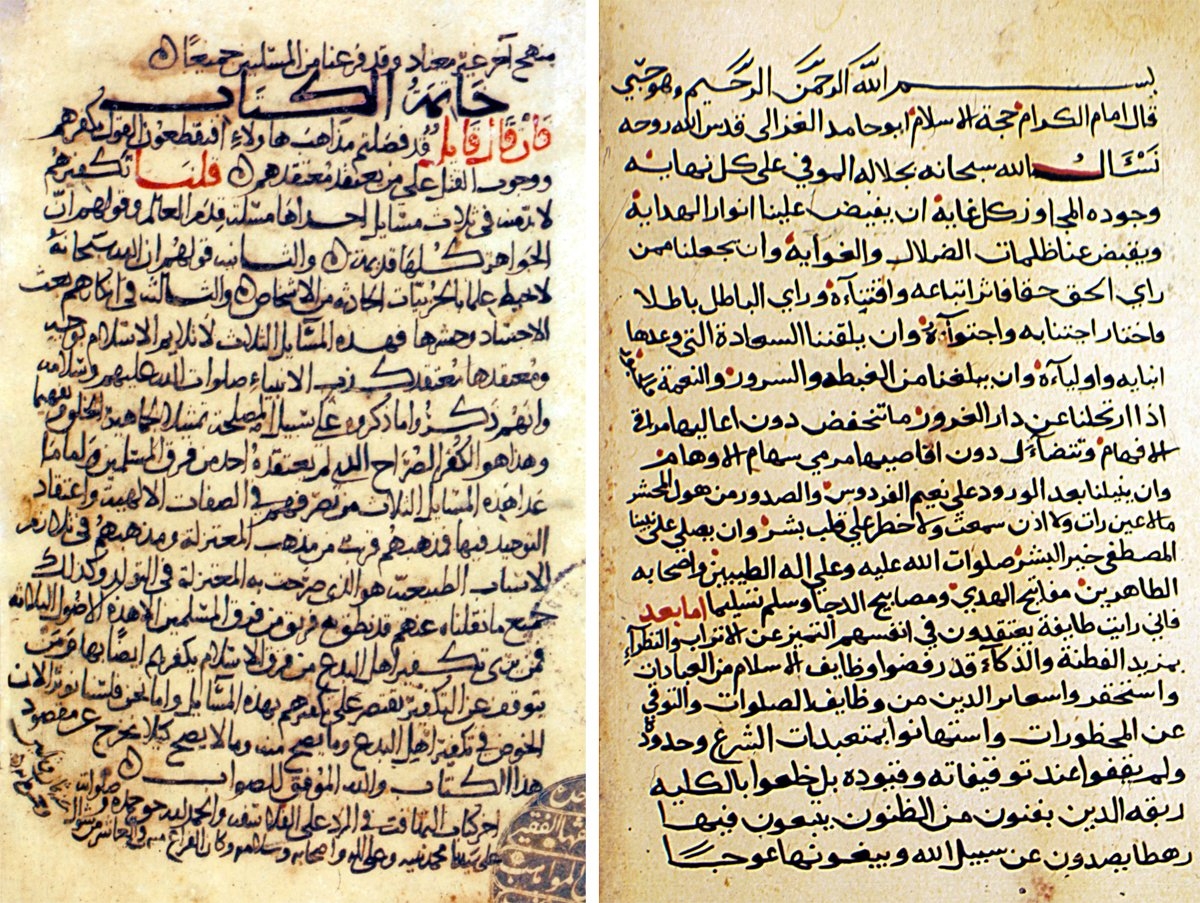 بسم الله الرحمن الرحيم وهو حسبي
قال امام الكرام حجة الاسلام ابو حامد الغزالي قدس الله روحه
نسال الله سبحانه بجلاله الموفي على كل نهاية
وجوده المجاوز كل غاية ان يفيض علينا انوار الهداية
ويقبض عنا ظلمات الضلال والغواية وان تجعلنا ممن
راي الحق حقا فاثر اتباعه واقتفاءه وراي الباطل باطلا
واختار اجتنابه واجتواءه وان يلقننا السعادة التي وعدها
انبيايه واولياءه وان يبلغنا من الغبطه والسرور والنعمة
اذا ارتحلنا عن دار الغرور ما تنخفض دون اعاليها مراقي
الافهام وتتضاءل دون اقاصيها مرمي سهام الاوهام
وان ينيلنا بعد الورود على نعيم الفردوس والصدور من هول المحشر
ما لا عين رات ولا اذن سمعت ولا خطر على قلب بشر وان يصلي على نبينا
المصطفى خير البشر صلوات الله عليه وعلى اله الطيبين واصحابه
الطاهرين مفاتيح الهدي ومصابيح الدجا وسلم تسليما اما بعد
فاني رايت طايفة يعتقدون في انفسهم التميز عن الاتراب والنظراء
بمزيد الفطنة والذكاء قد رفضوا وظايف الاسلام من العبادات
واستحقروا شعاير الدين من وظايف الصلوات والتوقي
عن المحظورات واستهانوا بمتعبدات الشرع وحدوده
ولم يقفوا عند توقيفاته وقيوده بل خلعوا بالكليه
ربقه الدين بفنون من الظنون يتبعون فيها
رهطا يصدون عن سبيل الله ويبغونها عوجا
منهج آخر غير معتاد وقد فرغنا من المسلتين جميعا
خاتمة الكتاب
فان قال قايل قد فصلتم مذاهب هاولاء افتقطعون القول بكفرهم
ووجوب القتل على من يعتقد معتقدهم قلنا تكفيرهم
لا بد منه في ثلاث مسايل احداها مسلة قدم العالم وقولهم ان
الجواهر كلها قديمة والثانيه قولهم ان الله سبحانه
لا يحيط علما بالجزئيات الحادثه من الاشخاص والثالثه في انكارهم بعث
الاجساد وحشرها فهذه المسايل الثلاث لا تلايم الاسلام بوجه
ومعتقدها معتقد كذب الانبياء صلوات الله عليهم وسلامه
وانهم ذكروا ما ذكروه على سبيل المصلحة تمثيلا لجماهير الخلق وتفهيما
وهذا هو الكفر الصراح الذي لم يعتقده احد من فرق المسلمين فاما ما
عدا هذه المسايل الثلاث من تصرفهم في الصفات الالهية واعتقاد
التوحيد فيها فمذهبهم قريب من مذهب المعتزلة ومذهبهم في تلازم
الاسباب الطبيعية هو الذي صرحت به المعتزلة في التولد وكذلك
جميع ما نقلناه عنهم قد نطق به فريق من فرق المسلمين الا هذه الاصول الثلاثة
فمن يرى تكفير اهل البدع من فرق الاسلام يكفرهم ايضا بها ومن
يتوقف عن التكفير يقتصر على تكفيرهم بهذه المسايل واما نحن فلسنا نوثر الان
الخوض في تكفير اهل البدع وما يصح منه وما لا يصح كيلا يخرج عن مقصود
هذا الكتاب والله الموفق للصواب
اخر كتاب التهافت في الرد على الفلاسفه والحمد لله حق حمده وصلواته
على سيدنا محمد نبيه وعلى اله واصحابه وسلامه وكان الفراغ منه في العاشر من شوال